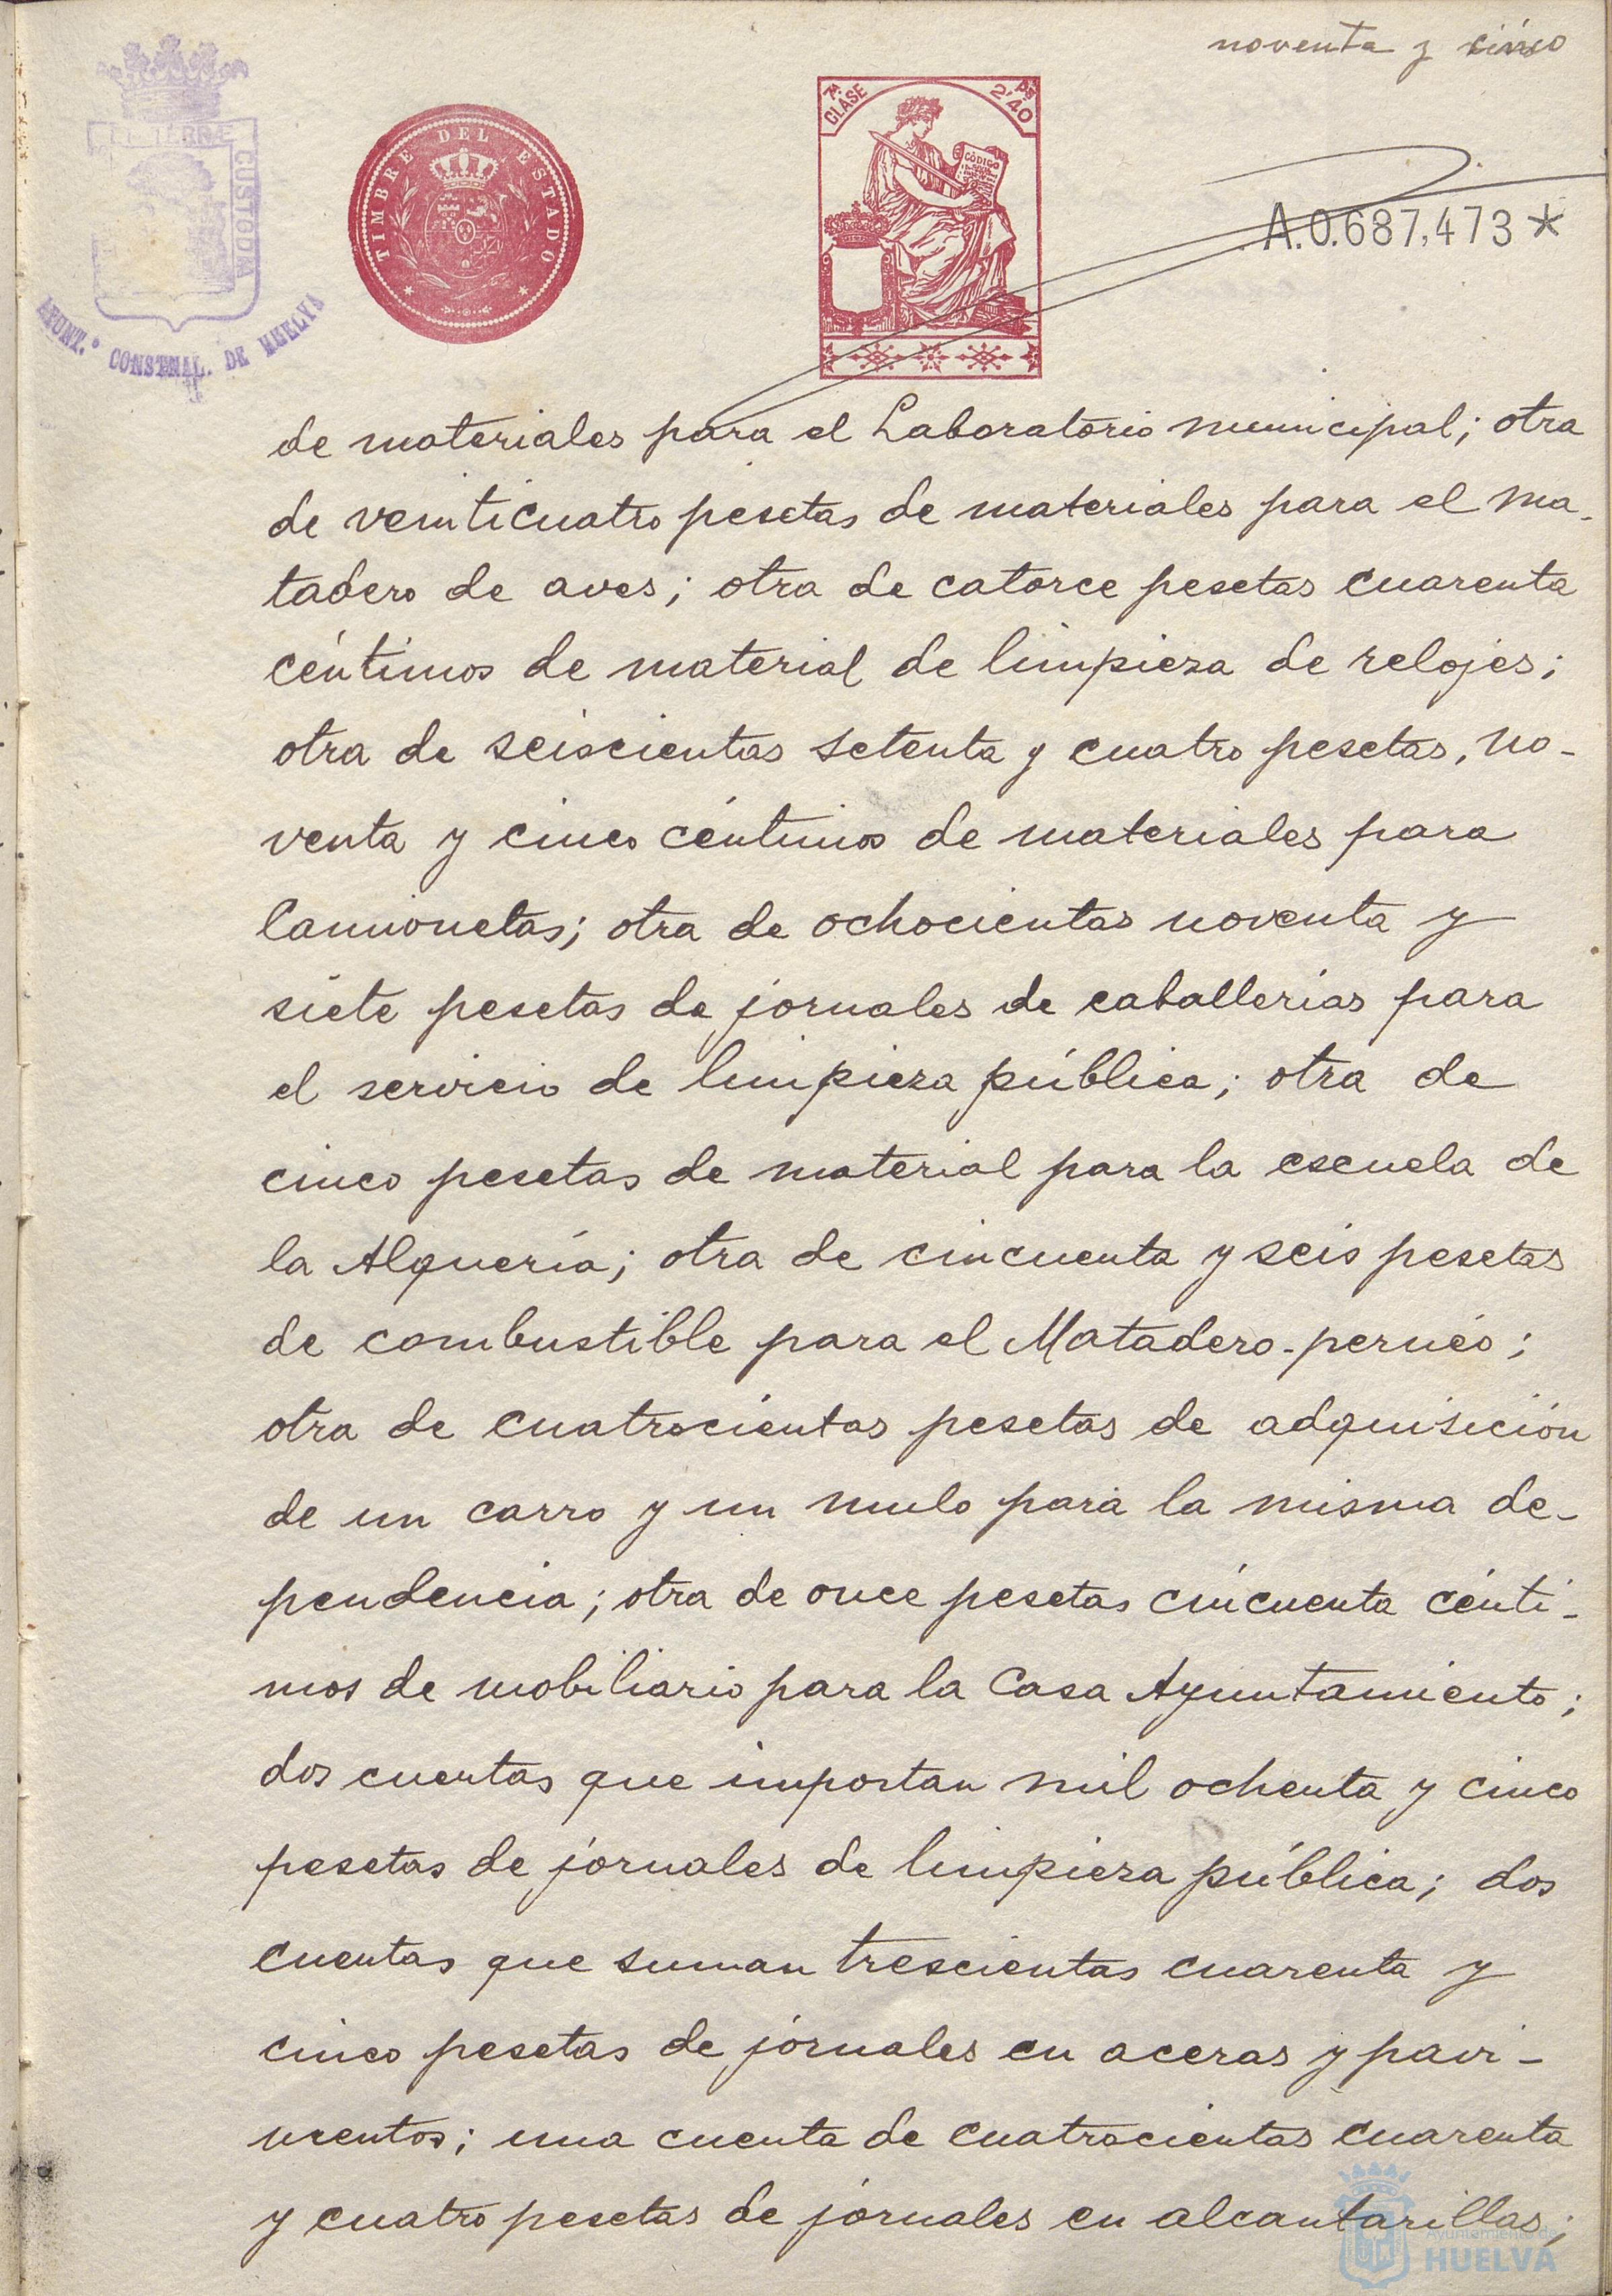 noventa y cinco
TIMBRE DEL ESTADO
7ª CLASE
2'40 Pts
CÓDIGO
A.0.687,473*
CUSTODIA
AYUNT.º CONSTNAL. DE HUELVA
de materiales para el Laboratorio municipal; otra
de veinticuatro pesetas de materiales para el ma-
tadero de aves; otra de catorce pesetas cuarenta
céntimos de material de limpieza de relojes;
otra de seiscientas setenta y cuatro pesetas, no-
venta y cinco céntimos de materiales para
Camionetas; otra de ochocientas noventa y
siete pesetas de jornales de caballerías para
el servicio de limpieza pública; otra de
cinco pesetas de material para la escuela de
la Alquería; otra de cincuenta y seis pesetas
de combustible para el Matadero-pernéo;
otra de cuatrocientas pesetas de adquisición
de un carro y un mulo para la misma de-
pendencia; otra de once pesetas cincuenta cénti-
mos de mobiliario para la Casa Ayuntamiento;
dos cuentas que importan mil ochenta y cinco
pesetas de jornales de limpieza pública; dos
cuentas que suman trescientas cuarenta y
cinco pesetas de jornales en aceras y pavi-
mentos; una cuenta de cuatrocientas cuarenta
y cuatro pesetas de jornales en alcantarillas;
Ayuntamiento de
HUELVA